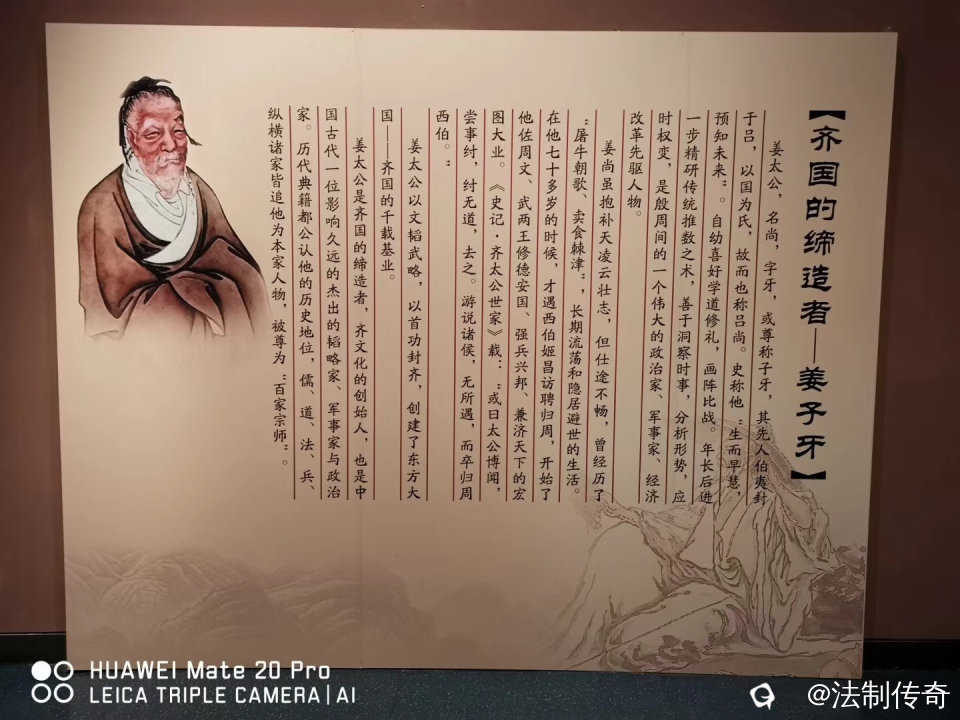 【齐国的缔造者——姜子牙】
姜太公，名尚，字牙，或尊称子牙，其先人伯夷封
于吕，以国为氏，故而也称吕尚。史称他“生而早慧，
预知未来”。自幼喜好学道修礼，画阵比战。年长后进
一步精研传统推数之术，善于洞察时事，分析形势，应
时权变，是殷周间的一个伟大的政治家、军事家、经济
改革先驱人物。
姜尚虽抱补天凌云壮志，但仕途不畅，曾经历了
“屠牛朝歌、卖食棘津”，长期流荡和隐居避世的生活。
在他七十多岁的时候，才遇西伯姬昌访聘归周，开始了
他佐周文、武两王修德安国、强兵兴邦、兼济天下的宏
图大业。《史记·齐太公世家》载：“或曰太公博闻，
尝事纣，纣无道，去之。游说诸侯，无所遇，而卒归周
西伯。”
姜太公以文韬武略，以首功封齐，创建了东方大
国——齐国的千载基业。
姜太公是齐国的缔造者，齐文化的创始人，也是中
国古代一位影响久远的杰出的韬略家、军事家与政治
家。历代典籍都公认他的历史地位，儒、道、法、兵、
纵横诸家皆追他为本家人物，被尊为“百家宗师”。
HUAWEI Mate 20 Pro
LEICA TRIPLE CAMERA | AI
@法制传奇